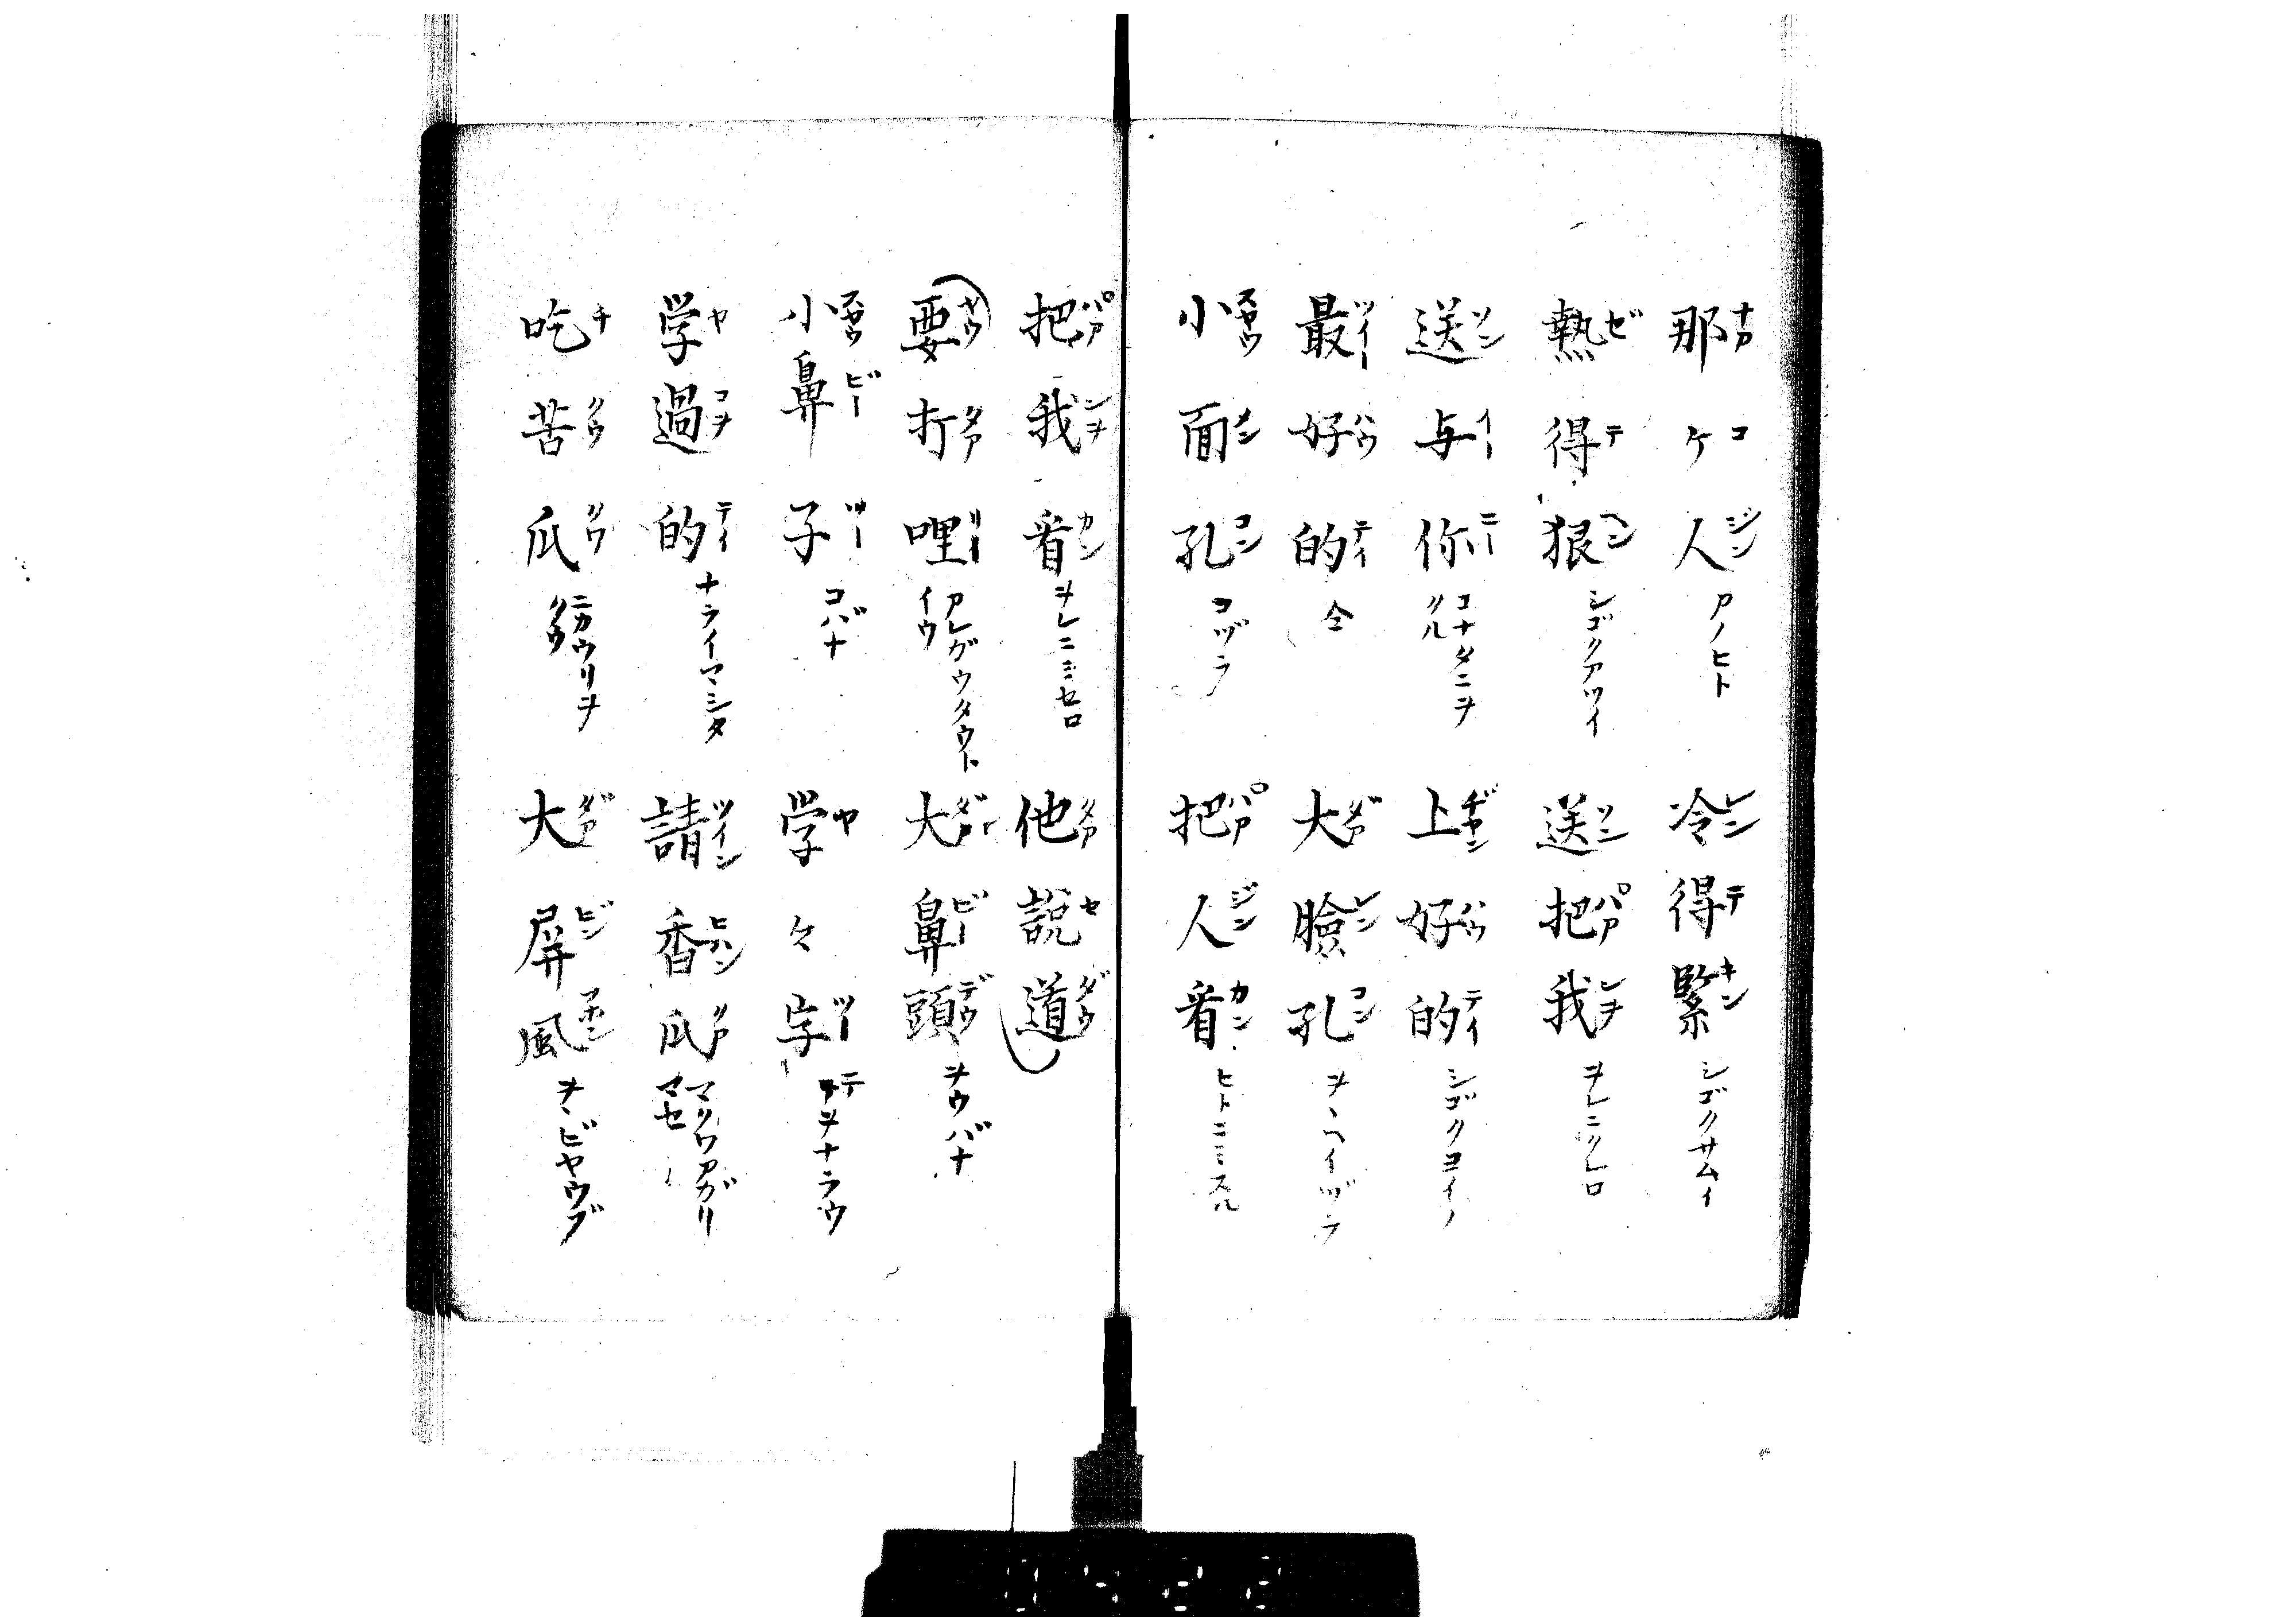 那ケ人 ナアコジン アノヒト 冷得緊 レンテキン シゴクサムイ
熱得狠 ゼテヘン シゴクアツイ 送把我 ソンパアンヲ ヲレニクレロ
送与你 ソンイーニー コナタニヲクル 上好的 ヂヤンハウテイ シゴクヨイノ
最好的 ツイーハウテイ 仝 大臉孔 ダアレンコン ヲヽヘイヅラ
小面孔 スヤウメンコン コヅラ 把人看 パアジンカン ヒトニミスル
把我看 パアンヲカン ヲレニミセロ 他說道 タアセダウ
要打哩 ヤウタアリー アレガウタウトイウ 大鼻頭 ダアビーデウ ヲウバナ
小鼻子 スヤウビーツー コバナ 学々字 ヤツー テヲナラウ
学過的 ヤコヲテイ ナライマシタ 請香瓜 ツインヒヤンクアマクワアガリマセ
吃苦瓜 チクウクワ ニガウリヲクウ 大屏風 ダアビンフヲン ヲヽビヤウブ